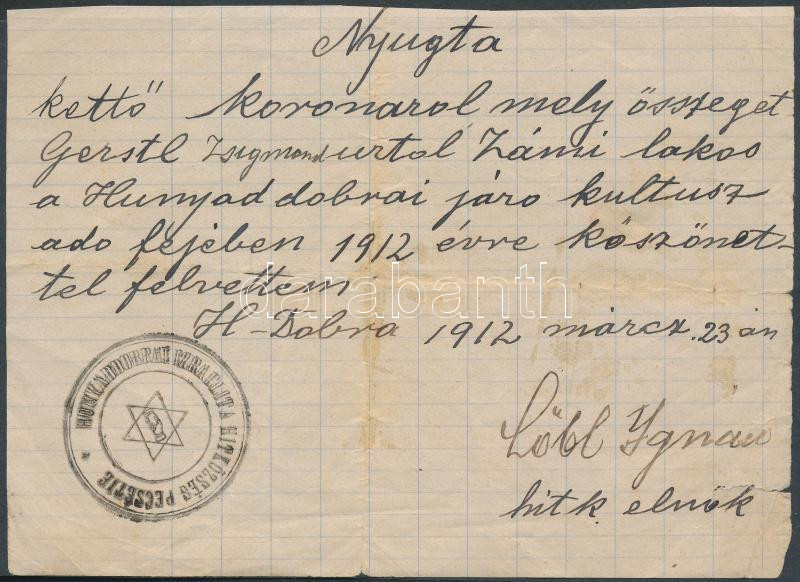 Nyugta
kettő koronarol mely összeget
Gerstl Zsigmond urtol Zámi lakos
a Hunyad dobrai járo kultusz
ado fejében 1912 évre köszönet-
tel felvettem
darabanth
H-Dobra 1912 márcz. 23 án
HUNYADDOBRAI IZRAELITA HITKÖZSÉG PECSÉTJE *
Löbl Ignác
hitk. elnök